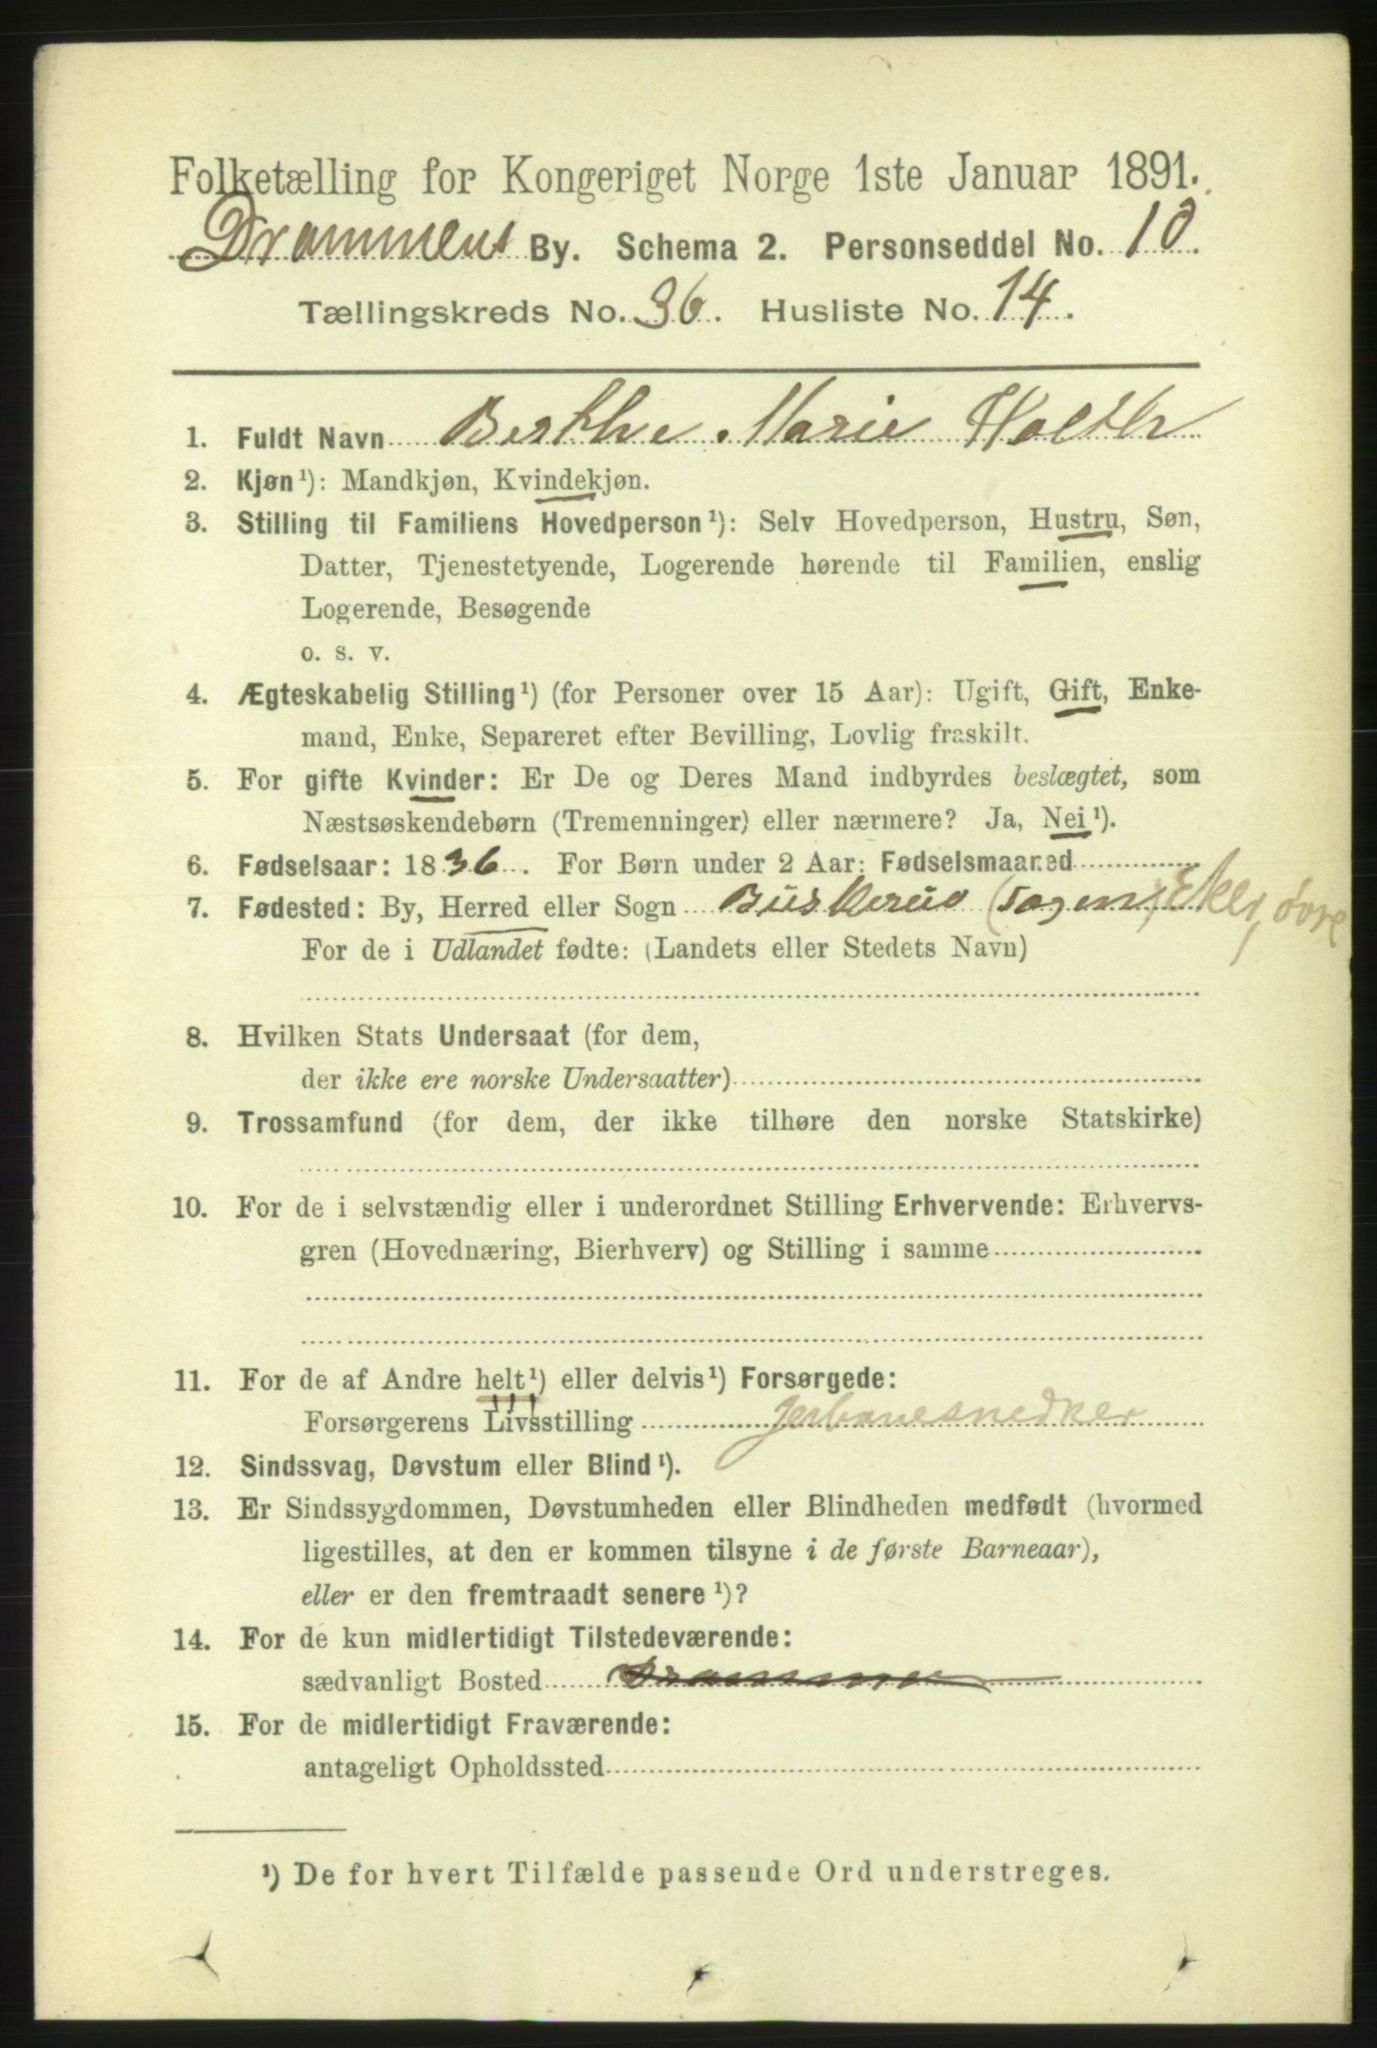 Folketælling for Kongeriget Norge 1ste Januar 1891.
Drammens By. Schema 2. Personseddel No. 10.
Tællingskreds No. 36. Husliste No. 14.
1. Fuldt Navn Berthe Marie Holth
2. Kjøn¹): Mandkjøn, Kvindekjøn.
3. Stilling til Familiens Hovedperson¹): Selv Hovedperson, Hustru, Søn,
Datter, Tjenestetyende, Logerende hørende til Familien, enslig
Logerende, Besøgende
o. s. v.
4. Ægteskabelig Stilling¹) (for Personer over 15 Aar): Ugift, Gift, Enke-
mand, Enke, Separeret efter Bevilling, Lovlig fraskilt.
5. For gifte Kvinder: Er De og Deres Mand indbyrdes beslægtet, som
Næstsøskendebørn (Tremenninger) eller nærmere? Ja, Nei¹).
6. Fødselsaar: 1836. For Børn under 2 Aar: Fødselsmaaned
7. Fødested: By, Herred eller Sogn Buskerud Eker, øvre
For de i Udlandet fødte: (Landets eller Stedets Navn)
8. Hvilken Stats Undersaat (for dem,
der ikke ere norske Undersaatter)
9. Trossamfund (for dem, der ikke tilhøre den norske Statskirke)
10. For de i selvstændig eller i underordnet Stilling Erhvervende: Erhvervs-
gren (Hovednæring, Bierhverv) og Stilling i samme
11. For de af Andre helt¹) eller delvis¹) Forsørgede:
Forsørgerens Livsstilling Jerbanesnedker
12. Sindssvag, Døvstum eller Blind¹).
13. Er Sindssygdommen, Døvstumheden eller Blindheden medfødt (hvormed
ligestilles, at den er kommen tilsyne i de første Barneaar),
eller er den fremtraadt senere¹)?
14. For de kun midlertidigt Tilstedeværende:
sædvanligt Bosted Drammen
15. For de midlertidigt Fraværende:
antageligt Opholdssted
¹) De for hvert Tilfælde passende Ord understreges.